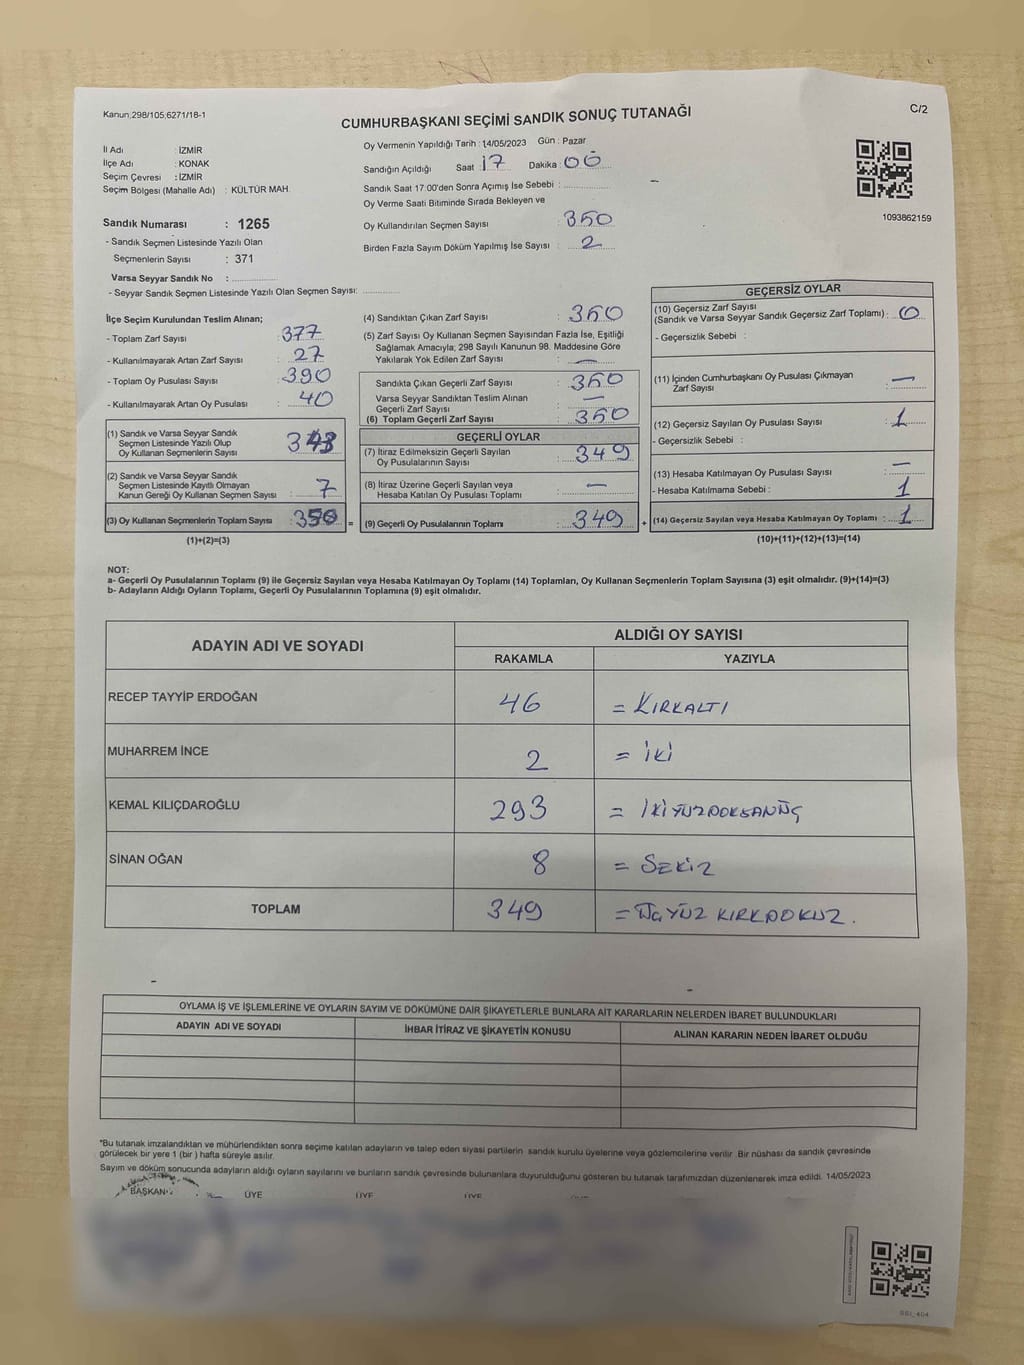 Kanun;298/105;6271/18-1
C/2
CUMHURBAŞKANI SEÇİMİ SANDIK SONUÇ TUTANAĞI
İl Adı : İZMİR
İlçe Adı : KONAK
Seçim Çevresi : İZMİR
Seçim Bölgesi (Mahalle Adı) : KÜLTÜR MAH.
Oy Vermenin Yapıldığı Tarih : 14/05/2023 Gün : Pazar
Sandığın Açıldığı Saat : 17 Dakika : 00
Sandık Saat 17:00'den Sonra Açımış İse Sebebi : –
Oy Verme Saati Bitiminde Sırada Bekleyen ve
Oy Kullandırılan Seçmen Sayısı : 350
Birden Fazla Sayım Döküm Yapılmış İse Sayısı : 2
1093862159
Sandık Numarası : 1265
- Sandık Seçmen Listesinde Yazılı Olan
Seçmenlerin Sayısı : 371
Varsa Seyyar Sandık No :
- Seyyar Sandık Seçmen Listesinde Yazılı Olan Seçmen Sayısı:
İlçe Seçim Kurulundan Teslim Alınan;
- Toplam Zarf Sayısı : 377
- Kullanılmayarak Artan Zarf Sayısı : 27
- Toplam Oy Pusulası Sayısı : 390
- Kullanılmayarak Artan Oy Pusulası : 40
(1) Sandık ve Varsa Seyyar Sandık
Seçmen Listesinde Yazılı Olup
Oy Kullanan Seçmenlerin Sayısı : 343
(2) Sandık ve Varsa Seyyar Sandık
Seçmen Listesinde Kayıtlı Olmayan
Kanun Gereği Oy Kullanan Seçmen Sayısı : 7
(3) Oy Kullanan Seçmenlerin Toplam Sayısı : 350
(1)+(2)=(3)
(4) Sandıktan Çıkan Zarf Sayısı : 350
(5) Zarf Sayısı Oy Kullanan Seçmen Sayısından Fazla İse, Eşitliği
Sağlamak Amacıyla; 298 Sayılı Kanunun 98. Maddesine Göre
Yakılarak Yok Edilen Zarf Sayısı : –
Sandıkta Çıkan Geçerli Zarf Sayısı : 350
Varsa Seyyar Sandıktan Teslim Alınan
Geçerli Zarf Sayısı : –
(6) Toplam Geçerli Zarf Sayısı : 350
GEÇERLİ OYLAR
(7) İtiraz Edilmeksizin Geçerli Sayılan
Oy Pusulalarının Sayısı : 349
(8) İtiraz Üzerine Geçerli Sayılan veya
Hesaba Katılan Oy Pusulası Toplamı : –
= (9) Geçerli Oy Pusulalarının Toplamı : 349
GEÇERSİZ OYLAR
(10) Geçersiz Zarf Sayısı
(Sandık ve Varsa Seyyar Sandık Geçersiz Zarf Toplamı) : 0
- Geçersizlik Sebebi :
(11) İçinden Cumhurbaşkanı Oy Pusulası Çıkmayan
Zarf Sayısı : –
(12) Geçersiz Sayılan Oy Pusulası Sayısı : 1
- Geçersizlik Sebebi :
(13) Hesaba Katılmayan Oy Pusulası Sayısı : –
- Hesaba Katılmama Sebebi : 1
+ (14) Geçersiz Sayılan veya Hesaba Katılmayan Oy Toplamı : 1
(10)+(11)+(12)+(13)=(14)
NOT:
a- Geçerli Oy Pusulalarının Toplamı (9) ile Geçersiz Sayılan veya Hesaba Katılmayan Oy Toplamı (14) Toplamları, Oy Kullanan Seçmenlerin Toplam Sayısına (3) eşit olmalıdır. (9)+(14)=(3)
b- Adayların Aldığı Oyların Toplamı, Geçerli Oy Pusulalarının Toplamına (9) eşit olmalıdır.
ADAYIN ADI VE SOYADI
ALDIĞI OY SAYISI
RAKAMLA YAZIYLA
RECEP TAYYİP ERDOĞAN 46 = KIRKALTI
MUHARREM İNCE 2 = İKİ
KEMAL KILIÇDAROĞLU 293 = İKİYÜZDOKSANÜÇ
SİNAN OĞAN 8 = SEKİZ
TOPLAM 349 = ÜÇYÜZ KIRKDOKUZ.
OYLAMA İŞ VE İŞLEMLERİNE VE OYLARIN SAYIM VE DÖKÜMÜNE DAİR ŞİKAYETLERLE BUNLARA AİT KARARLARIN NELERDEN İBARET BULUNDUKLARI
ADAYIN ADI VE SOYADI İHBAR İTİRAZ VE ŞİKAYETİN KONUSU ALINAN KARARIN NEDEN İBARET OLDUĞU
*Bu tutanak imzalandıktan ve mühürlendikten sonra seçime katılan adayların ve talep eden siyasi partilerin sandık kurulu üyelerine veya gözlemcilerine verilir. Bir nüshası da sandık çevresinde
görülecek bir yere 1 (bir) hafta süreyle asılır.
Sayım ve döküm sonucunda adayların aldığı oyların sayılarını ve bunların sandık çevresinde bulunanlara duyurulduğunu gösteren bu tutanak tarafımızdan düzenlenerek imza edildi. 14/05/2023
BAŞKAN ÜYE ÜYE ÜYE